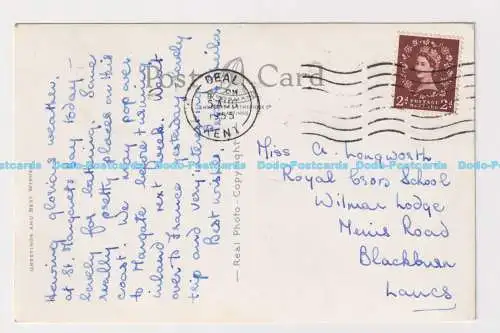 Post Card
Having glorious weather.
at St. Margarets Bay today -
lovely for bathing. Some
really pretty places on this
coast. We may pop over
to Margate before turning
inland next week. Went
over to France yesterday lovely
trip and very interesting.
Best wishes Sheila
GREETINGS AND BEST WISHES
— Real Photo - Copyright —
DEAL
1955
KENT
2d POSTAGE REVENUE 2d
Miss A. Longworth
Royal Cross School
Wilmar Lodge
Meins Road
Blackburn
Lancs
Postcards Postcards Postcards Postcards Postcards